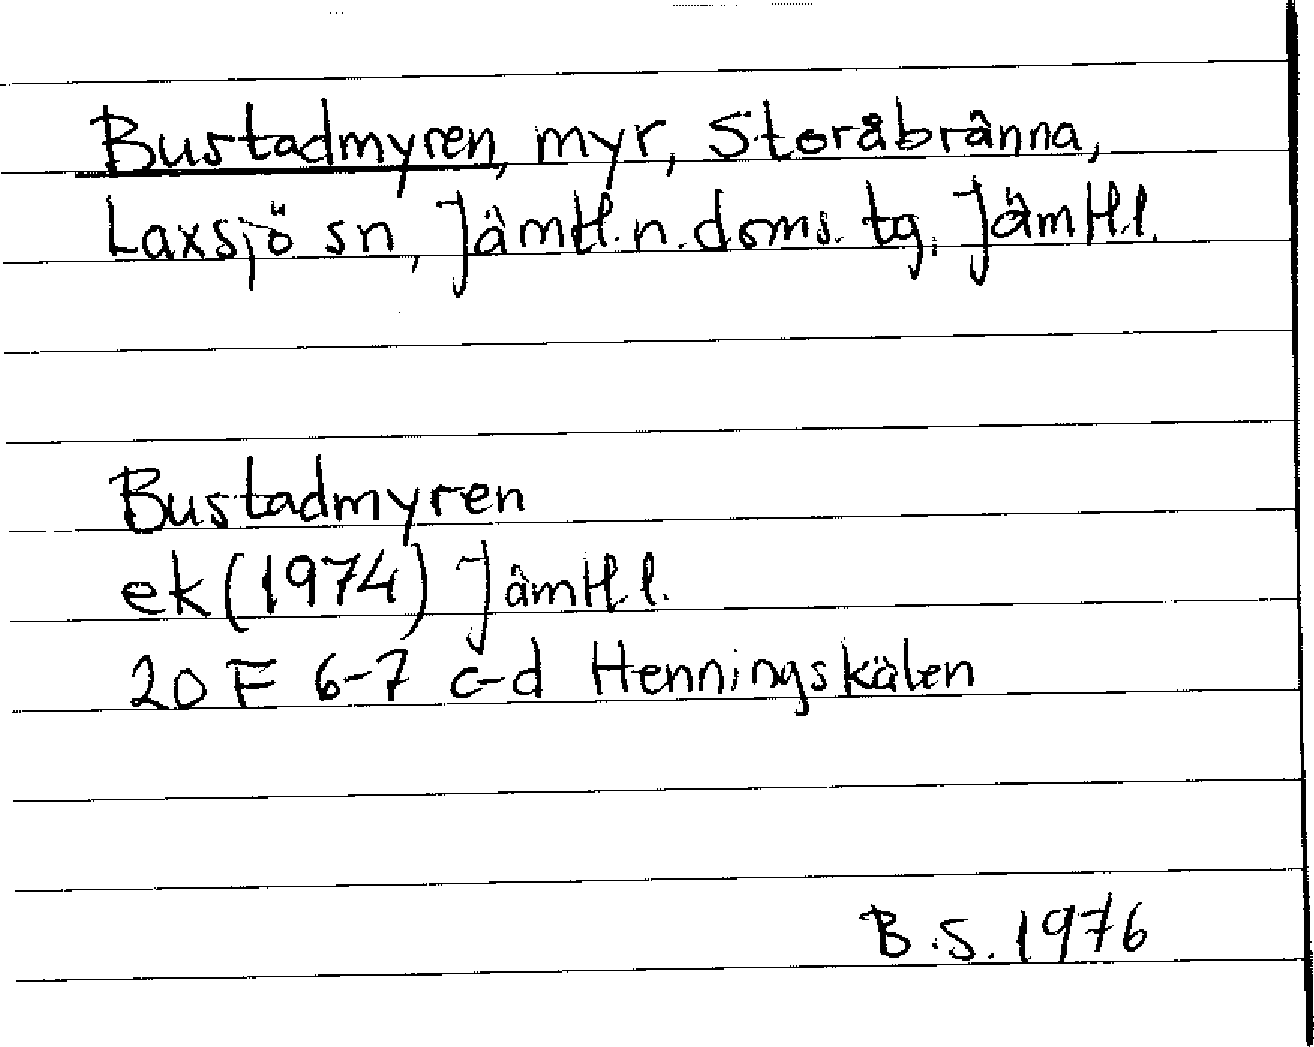 Bustadmyren, myr, Storåbränna,
Laxsjö sn, Jämtl.n.doms.tg. Jämtl.l.
Bustadmyren
ek (1974) Jämtl.l.
20 F 6-7 c-d Henningskälen
B.S. 1976